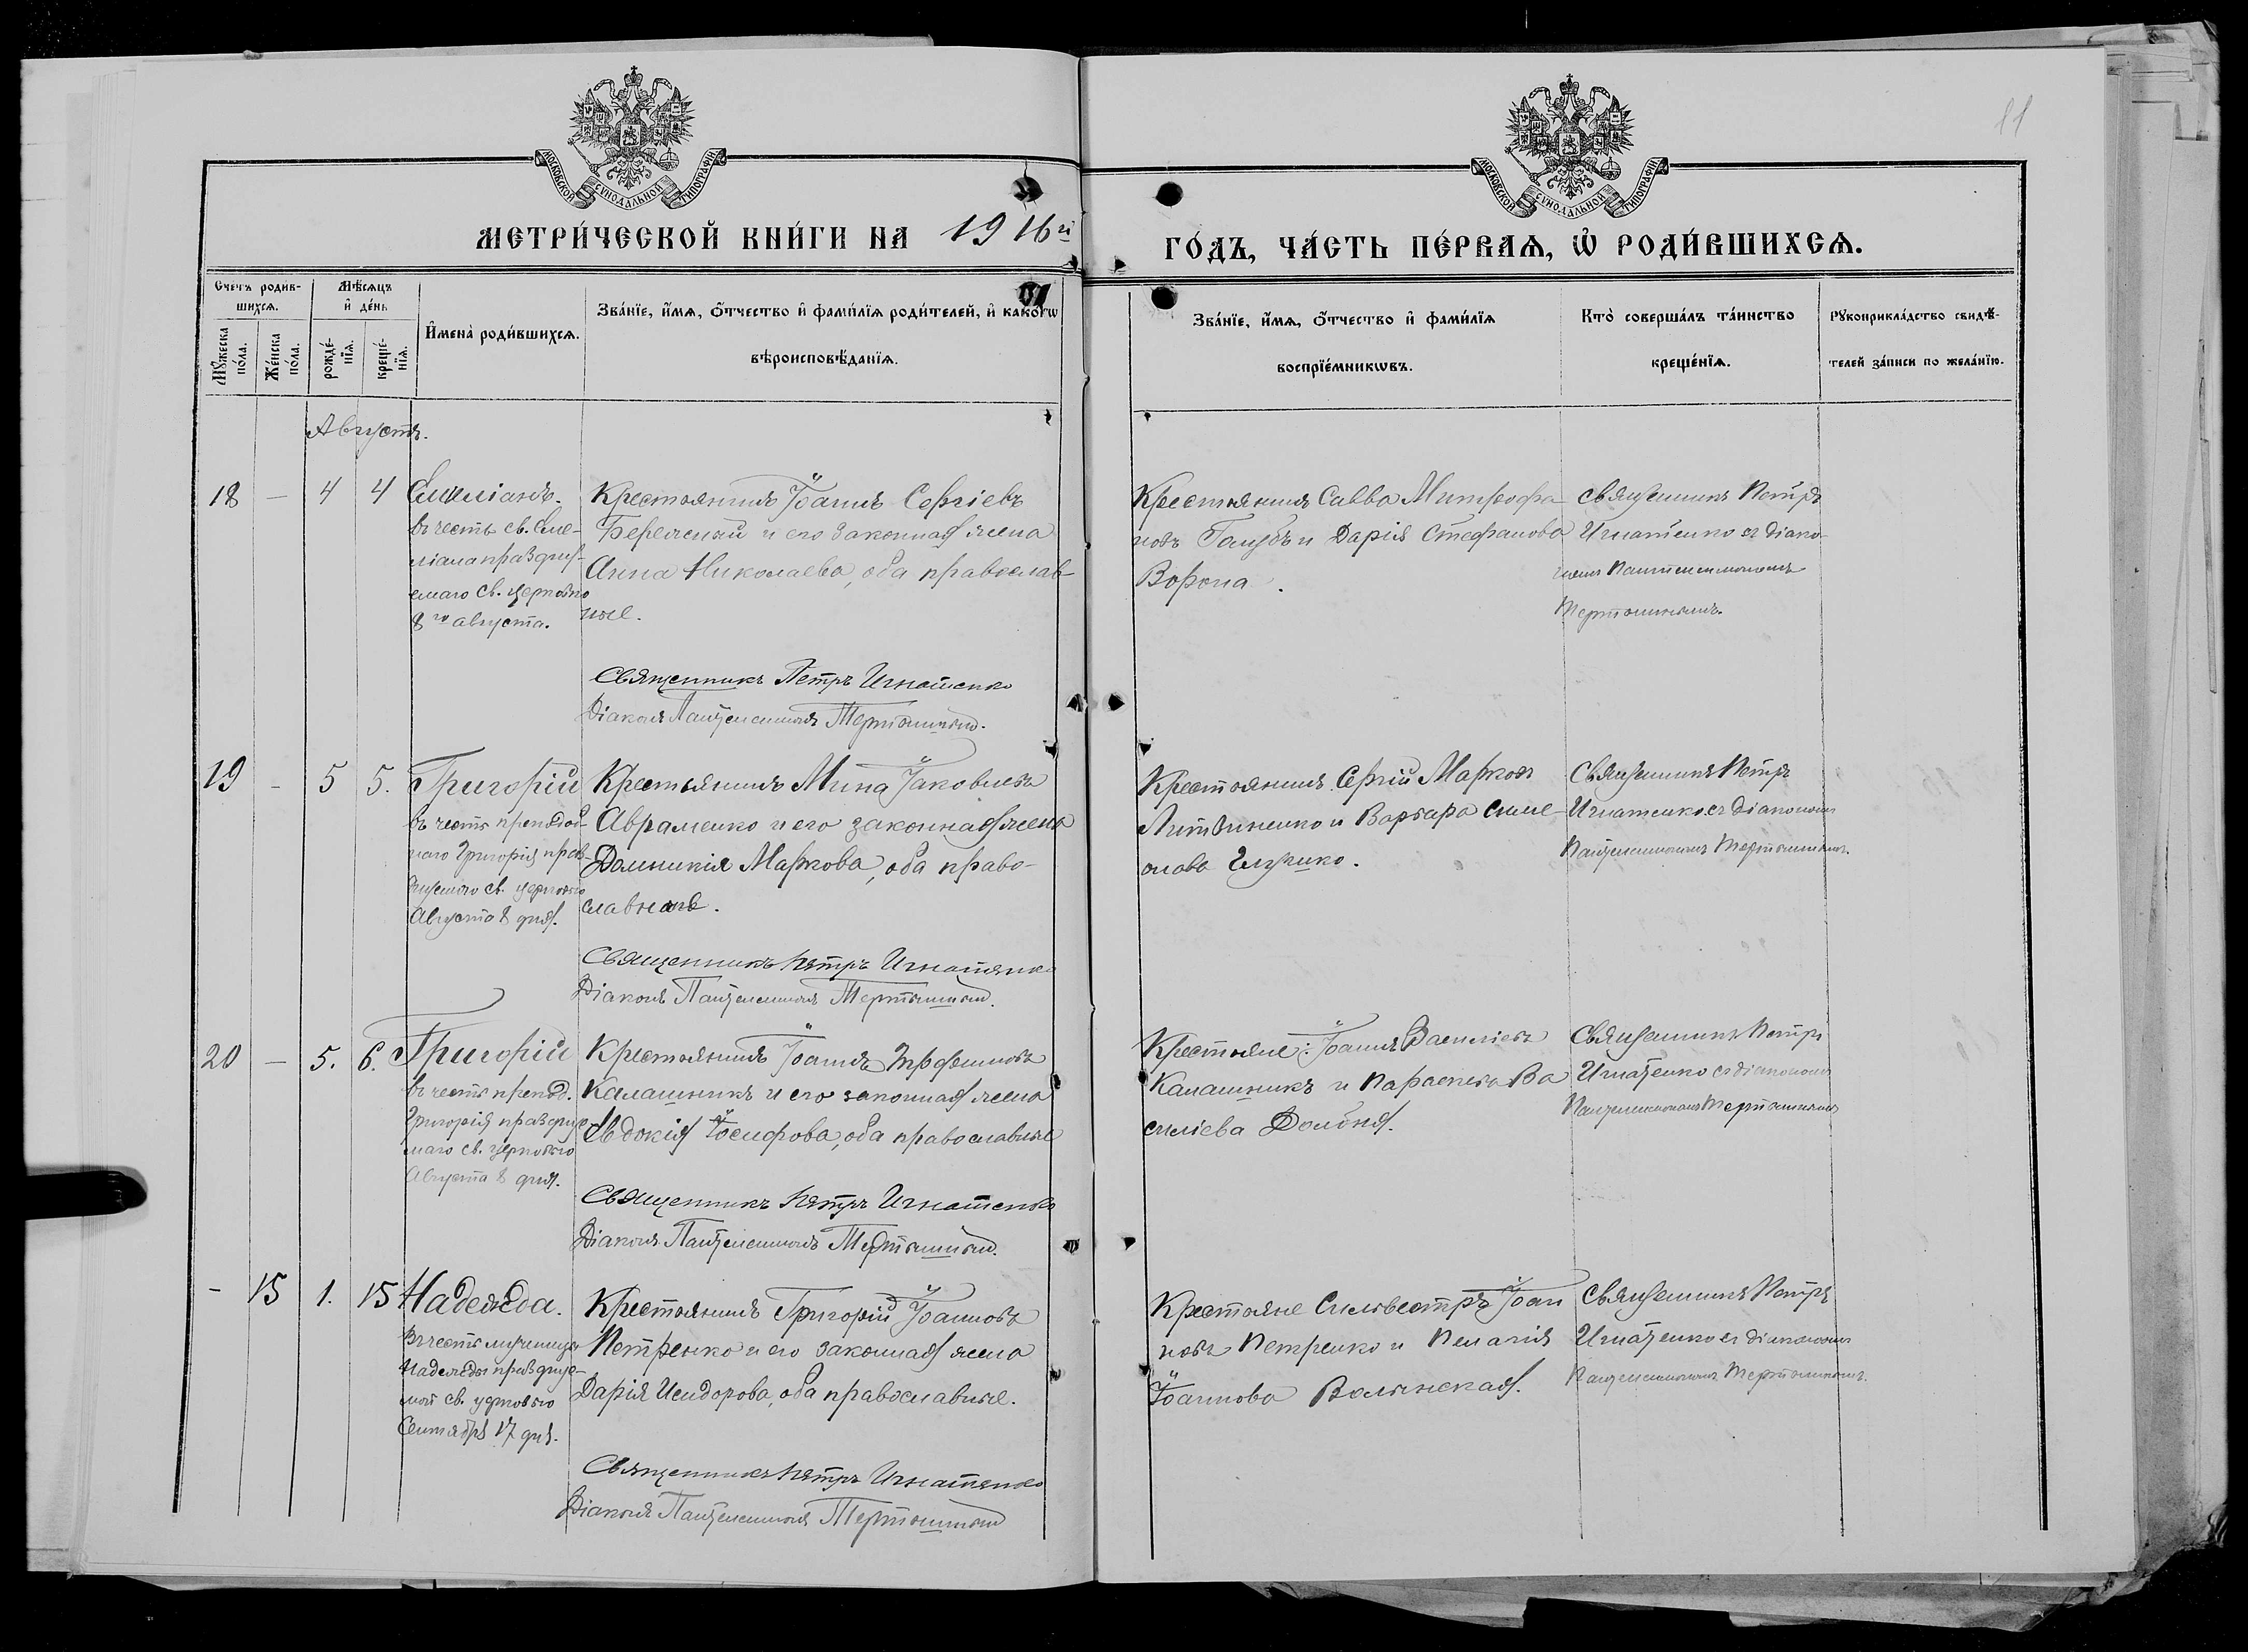 81
МОСКОВСКОЙ СѴНОДАЛЬНОЙ ТИПОГРАФІИ
МОСКОВСКОЙ СѴНОДАЛЬНОЙ ТИПОГРАФІИ
МЕТРИ́ЧЕСКОЙ КНИ́ГИ НА 1916й
ГО́ДЪ, ЧА́СТЬ ПЕ́РВАѦ, Ѡ҆ РОДИ́ВШИХСѦ.
Сче́тъ роди́в-
шихсѧ.
Мꙋ́жеска
по́ла.
Же́нска
по́ла.
Мѣ́сѧцъ
и҆ де́нь
рожде́-
нїѧ.
креще́-
нїѧ.
И҆мена̀ роди́вшихсѧ.
Зва́нїе, и҆́мѧ, ѻ҆́тчество и҆ фами́лїѧ роди́телей, и҆ како́гѡ
вѣроисповѣ́данїѧ.
Зва́нїе, и҆́мѧ, ѻ҆́тчество и҆ фами́лїѧ
воспрїе́мникѡвъ.
Кто̀ соверша́лъ та́инство
креще́нїѧ.
Рꙋкоприкла́дство свидѣ́-
телей за́писи по жела́нїю.
Августъ.
18 — 4 4
Емиліанъ.
въ честь св. Еми-
ліана празднуе-
маго св. церковію
8го августа.
Крестьянинъ Іоаннъ Сергіевъ
Бережный и его законная жена
Анна Николаева, оба православ-
ные.
Священникъ Петръ Игнатенко
Діаконъ Пантелеимонъ Тертышный.
Крестьянинъ Савва Митрофа-
новъ Голубъ и Дарія Стефанова
Ворона.
Священникъ Петръ
Игнатенко съ діако-
номъ Пантелеимономъ
Тертышнымъ.
19 — 5 5.
Григорій
въ честь преподоб-
наго Григорія празд-
нуемаго св. церковію
Августа 8 дня.
Крестьянинъ Мина Іаковлевъ
Авраменко и его законная жена
Домникія Маркова, оба право-
славные.
Священникъ Петръ Игнатенко
Діаконъ Пантелеимонъ Тертышный.
Крестьянинъ Сергій Марковъ
Литвиненко и Варвара Симе-
онова
Священникъ Петръ
Игнатенко съ діакономъ
Пантелеимономъ Тертышнымъ.
20 — 5. 6.
Григорій
въ честь препод.
Григорія празднуе-
маго св. церковію
Августа 8 дня.
Крестьянинъ Іоаннъ Трофимовъ
Калашникъ и его законная жена
Евдокія Іосифова, оба православные
Священникъ Петръ Игнатенко
Діаконъ Пантелеимонъ Тертышный.
Крестьяне: Іоаннъ Василіевъ
Калашникъ и Параскева Ва
силіева Долбня.
Священникъ Петръ
Игнатенко съ діакономъ
Пантелеимономъ Тертышнымъ
— 15 1. 15
Надежда.
Въ честь мученицы
Надежды празднуе-
мой св. церковію
Сентября 17 дня.
Крестьянинъ Григорій Іоанновъ
Петренко и его законная жена
Дарія Исидорова, оба православные.
Священникъ Петръ Игнатенко
Діаконъ Пантелеимонъ Тертышный
Крестьяне Сильвестръ Іоан
новъ Петренко и Пелагія
Іоаннова Волынская.
Священникъ Петръ
Игнатенко съ діакономъ
Пантелеимономъ Тертышнымъ.